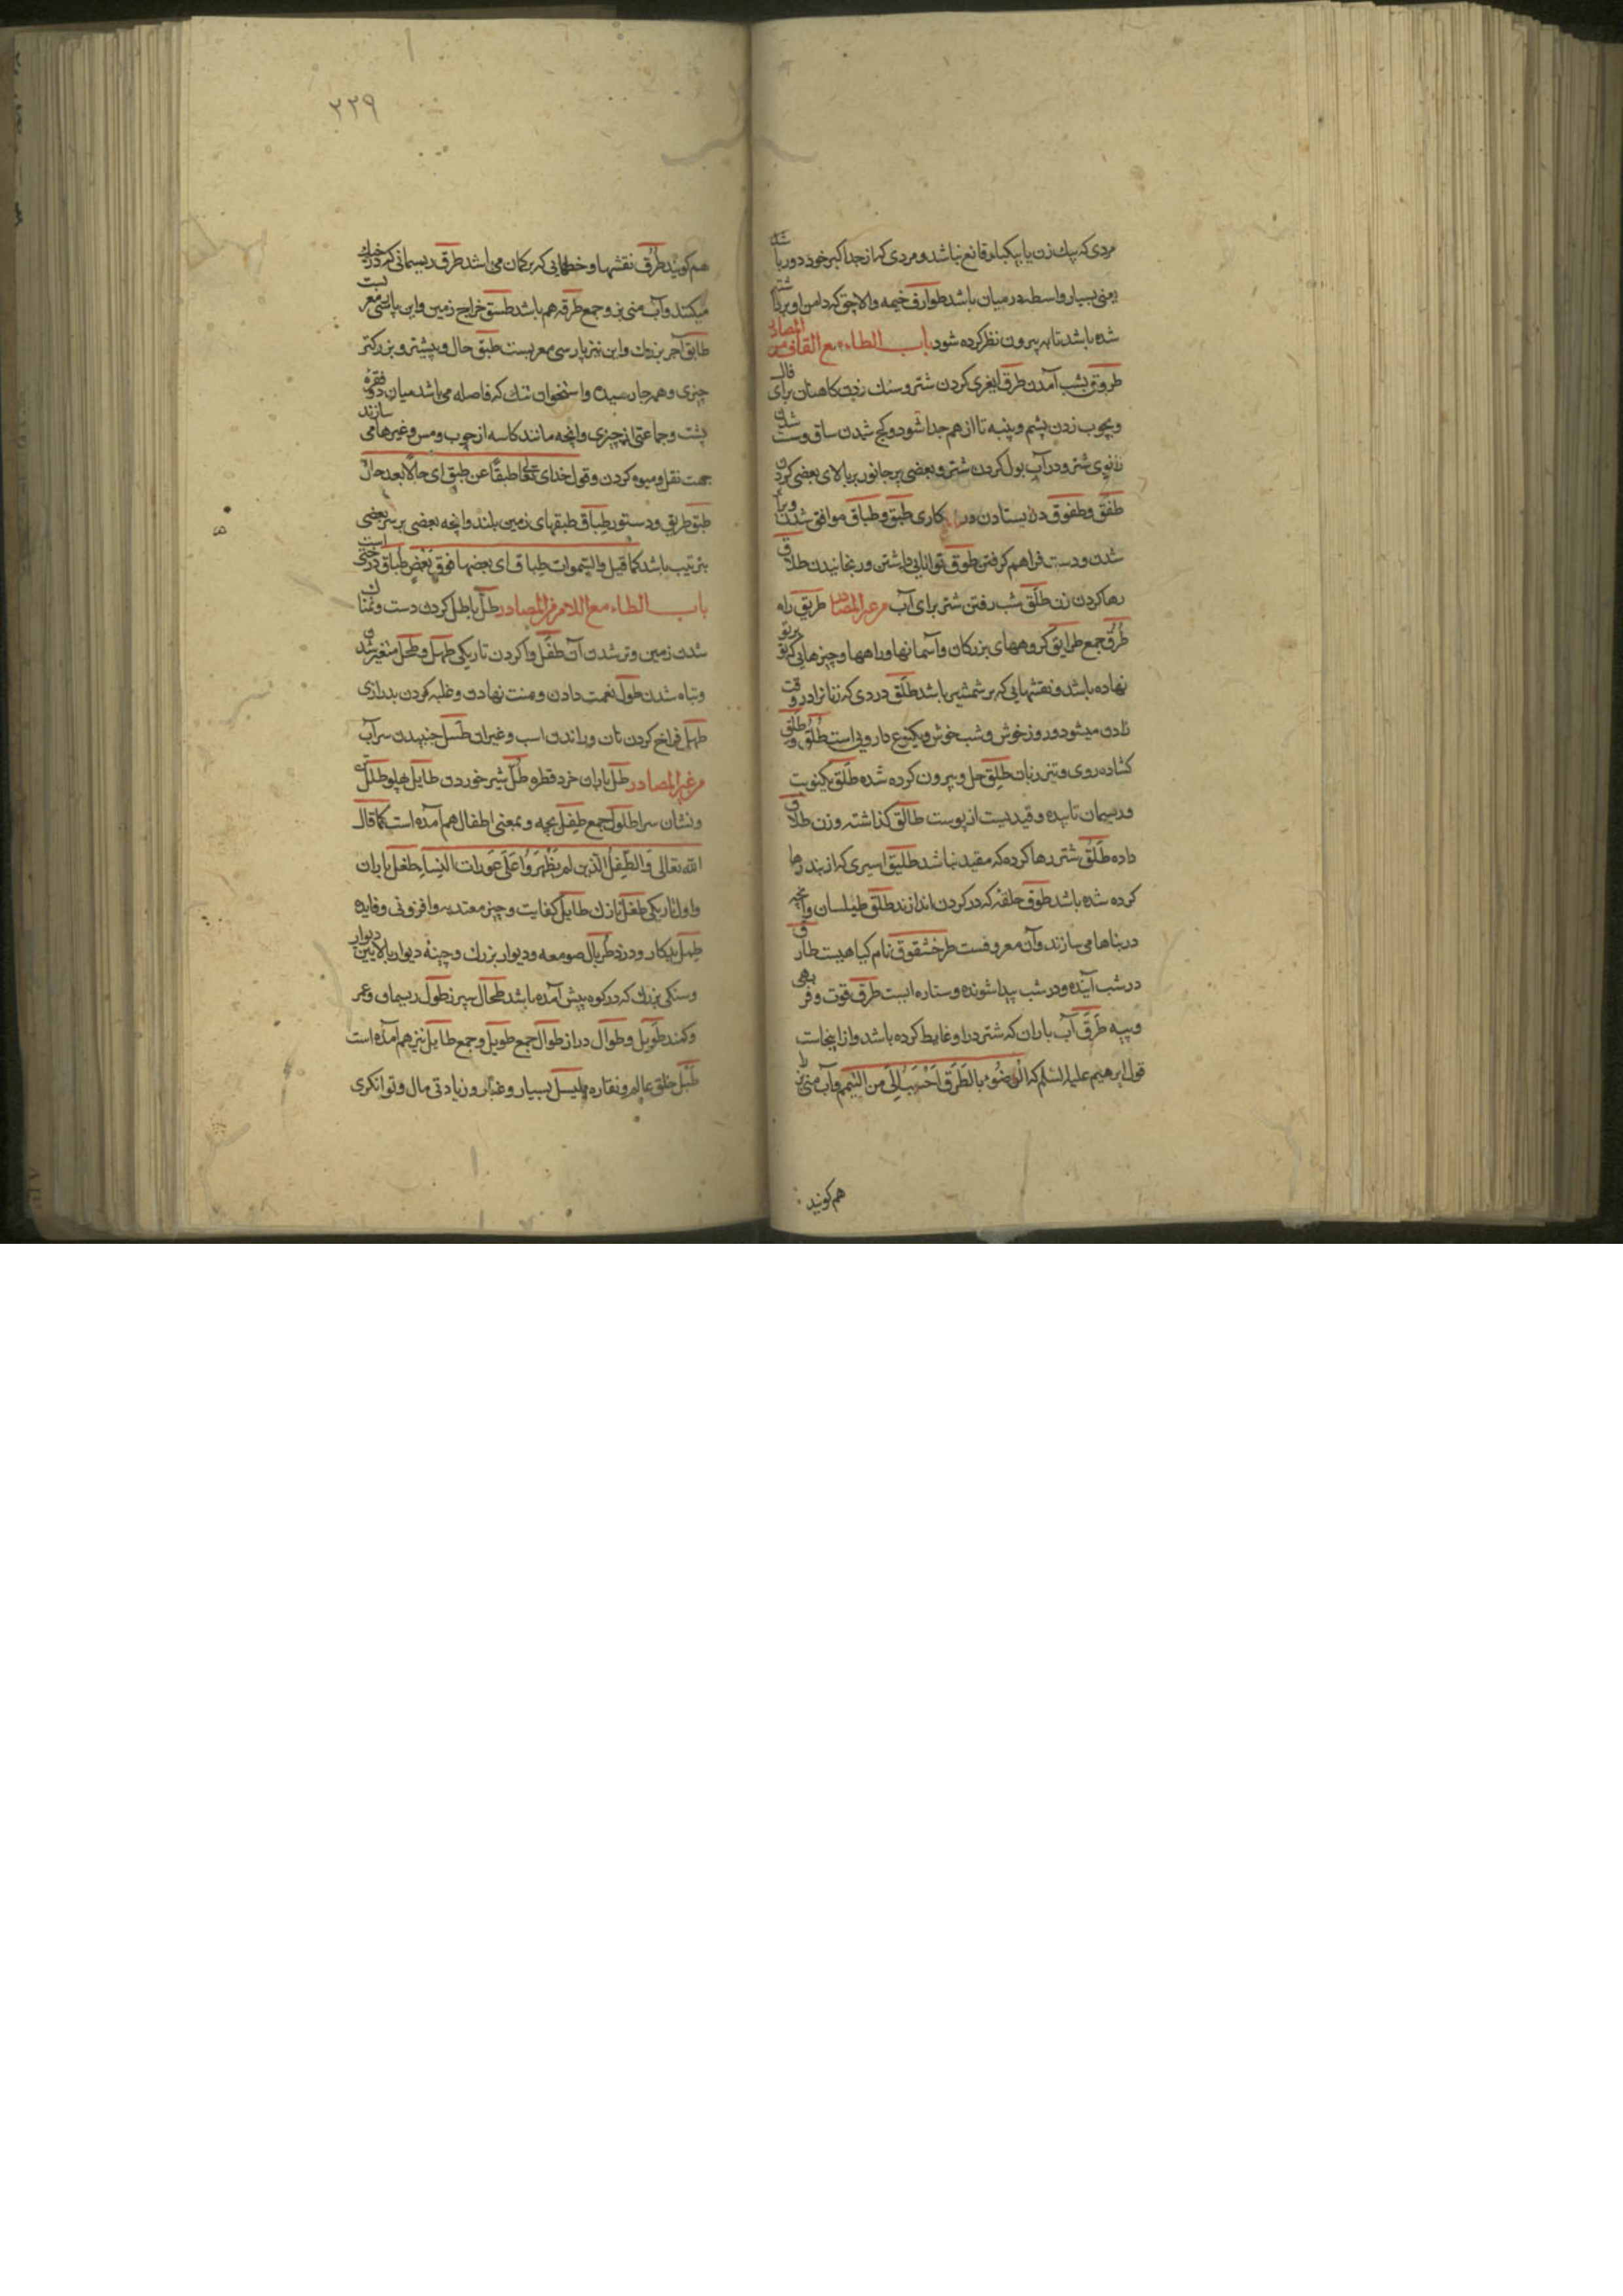 مردی که بیک زن یا بیکبار قانع نباشد و مردی که از جد اکبر خود دور باشد
یعنی بسیار واسطه در میان باشد طوارف خیمه والاچق که دامن او برداشته
شده باشد تا به بیرون نظر کرده شود باب الطاء مع القاف من المصادر
طروق بشب آمدن طرق ایغری کردن شتر و سنک زدن کاهنان برای فال
و بچوب زدن پشم و پنبه تا از هم جدا شود و کج شدن ساق و سست شدن
زانوی شتر و در آب بول کردن شتر و بعضی پر جانور بر بالای بعضی کردن
طفق و طفوق در ایستادن در کاری طبق و طباق موافق شدن و برابر
شدن و دست فراهم گرفتن طوق توانایی داشتن و رنجانیدن طلاق
رها کردن زن طلق شب رفتن شتر برای آب من غیر المصادر طریق راه
طرق جمع طرایق کروههای بزرکان و آسمانها و راهها و چیزهایی که بر تو
نهاده باشد و نقشهایی که بر شمشیر باشد طلق دردی که زنانرا در وقت
زادن میشود و روز خوش و شب خوش و یکنوع دارویی است طلق و طلق
کشاده روی و تیز زبان طلق حل و بیرون کرده شده طلق یکنوبت
و ریسمان تابیده و قیدیست از پوست طالق کذاشته و زن طلاق
داده طلق شتر رها کرده که مقید نباشد طلیق اسیری که از بند رها
کرده شده باشد طوق حلقه که در کردن اندازند طلق طیلسان و آنچه
در بناها می سازند و آن معروفست طرخشقوق نام کیاهیست طارق
در شب آینده و در شب پیدا شونده و ستاره ایست طرق قوت و فربهی
و پیه طرق آب باران که شتر در او غایط کرده باشد و از اینجاست
قول ابرهیم علیه السلم که الوضوء بالطرق احب الی من التیمم و آب منی نر
هم کویند
۲۲۹
هم کویند طرق نقشها و خطهایی که بر کمان می باشد طرق ریسمانی که در خیک
میکنند و آب منی نر و جمع طرقه هم باشد طسق خراج زمین و این پارسی معربست
طابق آجر بزرک و این نیز پارسی معربست طبق حال و بیشتر و بزرکتر
چیزی و هرجا رسیده و استخوان تنک که فاصله می باشد میان دو فقره
پشت و جماعتی از چیزی و آنچه مانند کاسه از چوب و مس و غیرها می سازند
جهت نقل و میوه کردن و قول خدای تعالی طبقا عن طبق ای حالا بعد حال
طبق طریق و دستور طباق طبقهای زمین بلند و آنچه بعضی بر سر بعضی
بترتیب باشد کما قیل والسموات طباق ای بعضها فوق بعض طباق درختی است
باب الطاء مع اللام من المصادر طل باطل کردن دست و نمناک
شدن زمین و تر شدن آن طفل وا کردن تاریکی طهل و طحل متغیر شدن
و تباه شدن طول نعمت دادن و منت نهادن و غلبه کردن بدرازی
طهل فراخ کردن نان و راندن اسب و غیر آن طسل جنبیدن سراب
من غیر المصادر طل باران خرد قطره طل شیر خوردن طایل پهلو طلل
و نشان سرا طلول جمع طفل بچه و بمعنی اطفال هم آمده است کما قال
الله تعالی والطفل الذین لم یظهروا علی عورات النساء طفل باران
و اول تاریکی طفل نازک طایل کفایت و چیز معتد به و افزونی و فایده
طمل بدکار و دزد طربال صومعه و دیوار بزرک و چینهٔ دیوار بالایین دیوار
و سنکی بزرک که در کوه پیش آمده باشد طحال سپرز طول ریسمان و عمر
و کمند طویل و طوال دراز طوال جمع طویل و جمع طایل نیز هم آمده است
طبل خلق عالم و نقاره طیسل بسیار و غبار و زیادتی مال و توانکری